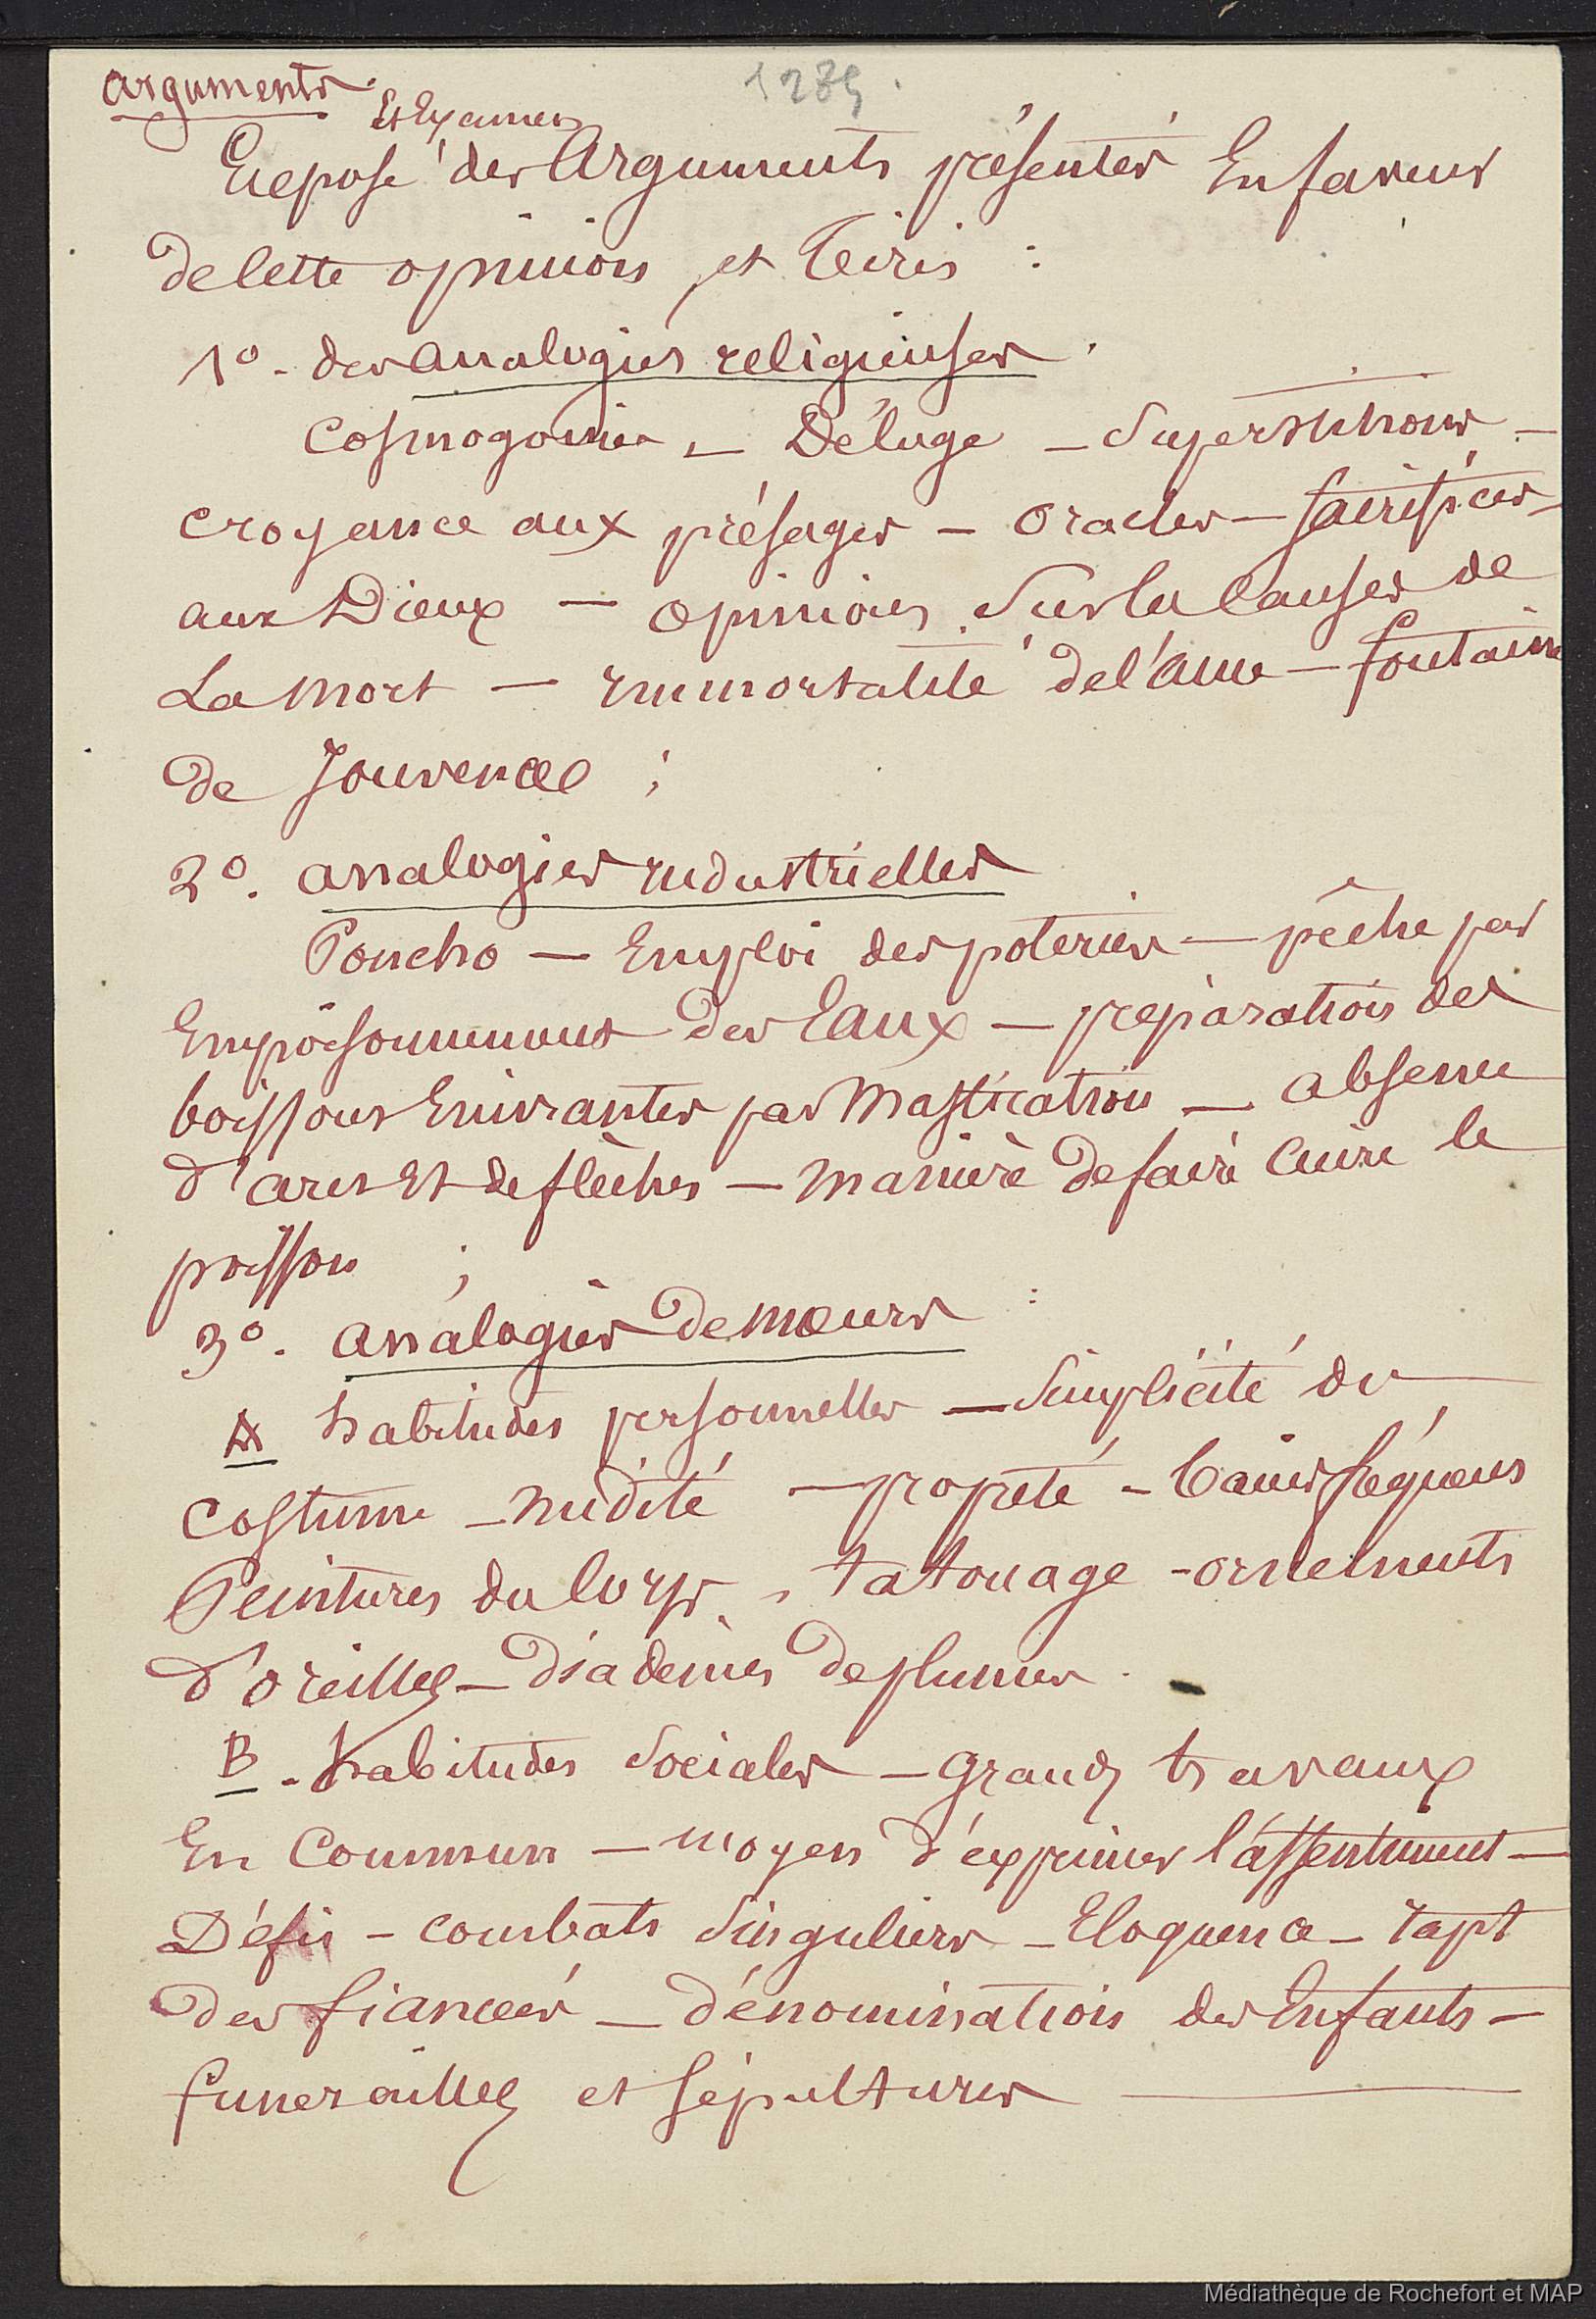 Arguments.
1289.
Et Examen
Exposé des Arguments présentés En faveur
de cette opinion, et Tirés :
1º. des analogies religieuses.
Cosmogonie – Déluge – Superstitions –
croyance aux présages – oracles – Sacrifices
aux Dieux – opinions sur les Causes de
La mort – immortalité de l'âme – fontaine
de Jouvence ;
2º. analogies industrielles
Poncho – Emploi des poteries – pêche par
Empoisonnement des Eaux – préparation des
boissons Enivrantes par Mastication – absence
d'arcs Et de flèches – manière de faire Cuire le
poisson ;
3º. analogies de moeurs :
A habitudes personnelles – Simplicité du
Costume – nudité – propreté – bains fréquens
Peintures du Corps – tatouage – ornements
d'oreilles – diadèmes de plumes.
B. habitudes Sociales – grands travaux
En Commun – moyen d'exprimer l'assentiment –
Défis – combats singuliers – Eloquence – rapt
des fiancées – dénomination des Enfants –
funerailles et Sépultures
Médiathèque de Rochefort et MAP